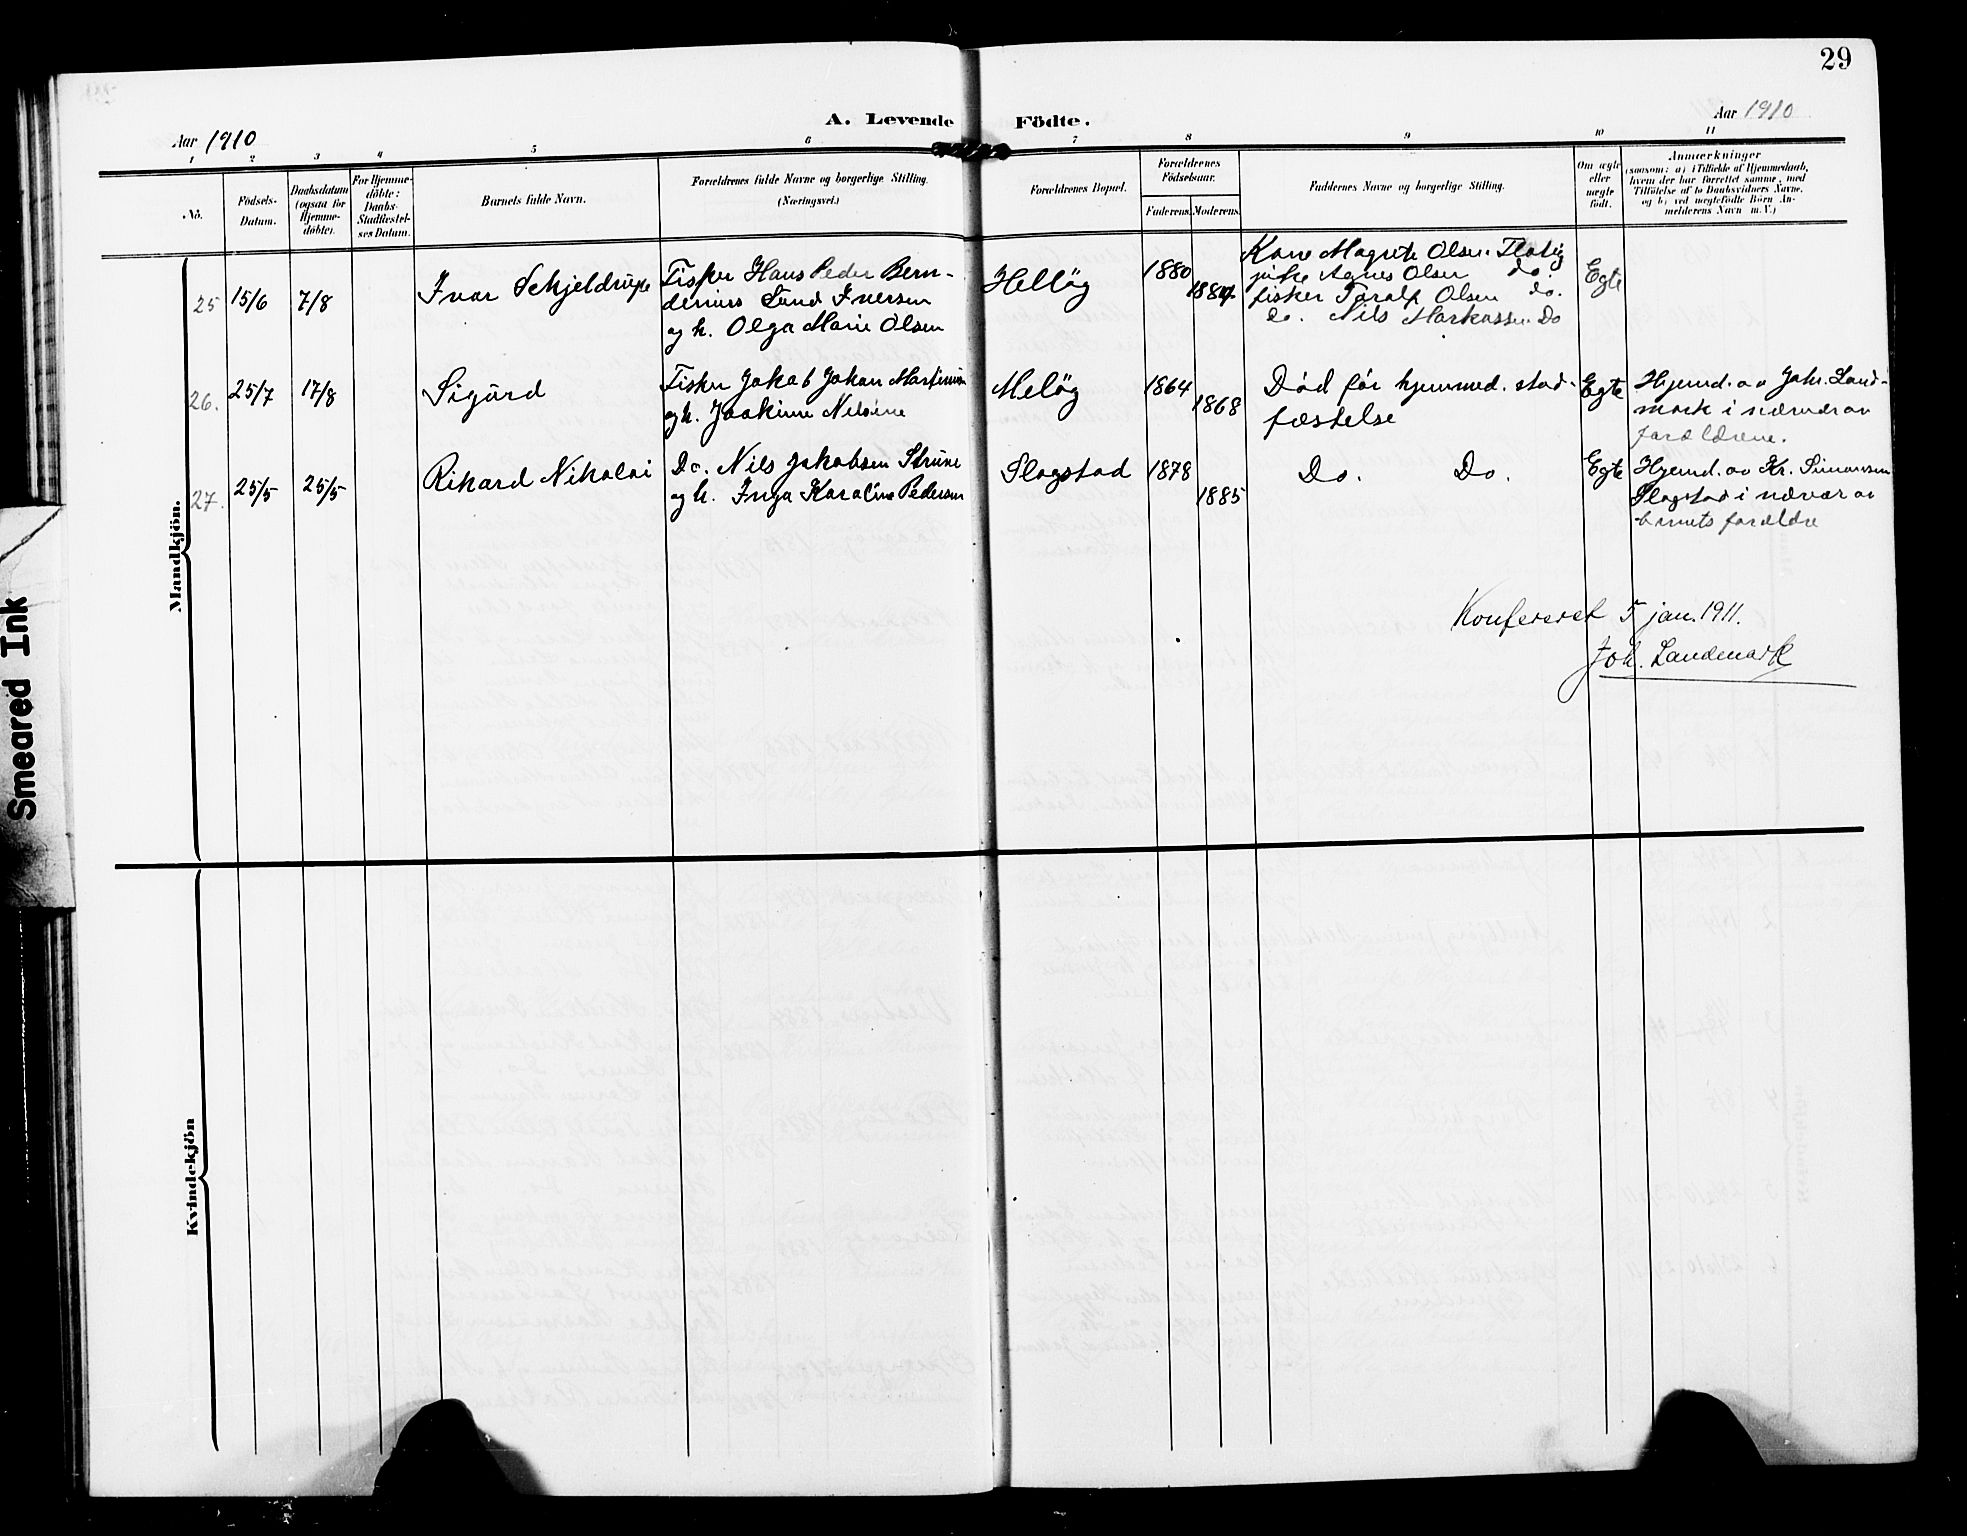 29
A. Levende Födte.
Aar 1910
Aar 1910
1 2 3 4 5 6 7 8 9 10 11
No.
Födsels-
Datum.
Daabsdatum
(ogsaa for
Hjemme-
döbte).
For Hjemme-
döbte:
Daabs-
Stadfæstel-
ses Datum.
Barnets fulde Navn.
Forældrenes fulde Navne og borgerlige Stilling.
(Næringsvei.)
Forældrenes Bopæl.
Forældrenes
Födselsaar.
Faderens. Moderens.
Faddernes Navne og borgerlige Stilling.
Om ægte
eller
uægte
födt.
Anmærkninger
(saasom: a) i Tilfælde af Hjemmedaab,
hvem der har forrettet samme, med
Tilföielse af to Daabsvidners Navne,
og b) ved uægtefödte Börn An-
melderens Navn m. V.)
Mandkjön.
25 15/6 7/8
Ivar Schjeldrupe
Fisker Hans Peder Bern-
dinius Sund Iversen
og h. Olga Marie Olsen
Hellög
1880
1884
Kone Magrete Olsen
pike Agnes Olsen do.
fisker Toralf Olsen do.
do. Nils Markussen Do
Egte
26. 25/7 17/8
Sigurd
Fisker Jakob Johan
og h. Joakime Nilsine
Melög
1864
1868
Död för hjemmed. stad-
fæstelse
Egte
Hjemd. av Joh. Land-
mark i nærvær av
forældrene.
27. 25/5 25/5
Rikard Nikolai
Do. Nils Jakobsen
og h. Inga Karoline Pedersen
Slogstad
1878
1885
Do. Do.
Egte
Hjemd. av Kr. Simonsen
Slogstad i nærvær av
barnets forældre
Konfereret 5 jan. 1911.
Joh. Landmark
Kvindekjön
Smeared Ink